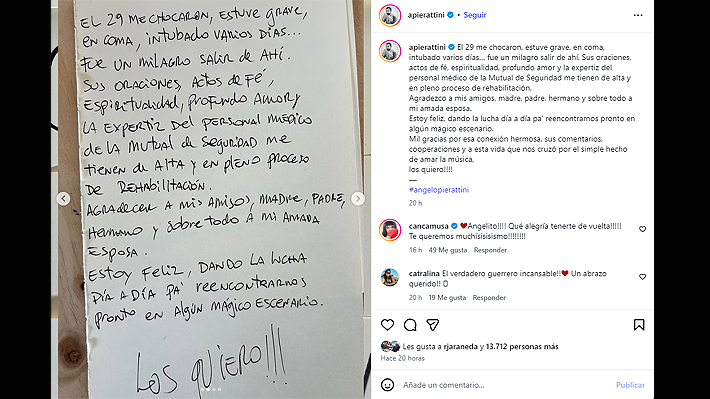 EL 29 ME CHOCARON, ESTUVE GRAVE,
EN COMA, INTUBADO VARIOS DÍAS...
FUE UN MILAGRO SALIR DE AHÍ.
SUS ORACIONES, ACTOS DE FÉ,
ESPIRITUALIDAD, PROFUNDO AMOR Y
LA EXPERTIZ DEL PERSONAL MÉDICO
DE LA MUTUAL DE SEGURIDAD ME
TIENEN DE ALTA Y EN PLENO PROCESO
DE REHABILITACIÓN.
AGRADECER A MIS AMIGOS, MADRE, PADRE,
HERMANO Y SOBRE TODO A MI AMADA
ESPOSA.
ESTOY FELIZ, DANDO LA LUCHA
DÍA A DÍA PA' REENCONTRARNOS
PRONTO EN ALGÚN MÁGICO ESCENARIO.
LOS QUIERO!!!
apierattini • Seguir
apierattini El 29 me chocaron, estuve grave, en coma,
intubado varios días... fue un milagro salir de ahí. Sus oraciones,
actos de fé, espiritualidad, profundo amor y la expertiz del
personal médico de la Mutual de Seguridad me tienen de alta y
en pleno proceso de rehabilitación.
Agradezco a mis amigos, madre, padre, hermano y sobre todo a
mi amada esposa.
Estoy feliz, dando la lucha día a día pa' reencontrarnos pronto en
algún mágico escenario.
Mil gracias por esa conexión hermosa, sus comentarios,
cooperaciones y a esta vida que nos cruzó por el simple hecho
de amar la música,
los quiero!!!!
—
#angelopierattini
20 h
cancamusa ❤️Angelito!!!! Qué alegría tenerte de vuelta!!!!!
Te queremos muchísisisismo!!!!!!!!
16 h 49 Me gusta Responder
catralina El verdadero guerrero incansable!!❤️ Un abrazo
querido!!
20 h 19 Me gusta Responder
Les gusta a rjaraneda y 13.712 personas más
Hace 20 horas
Añade un comentario... Publicar